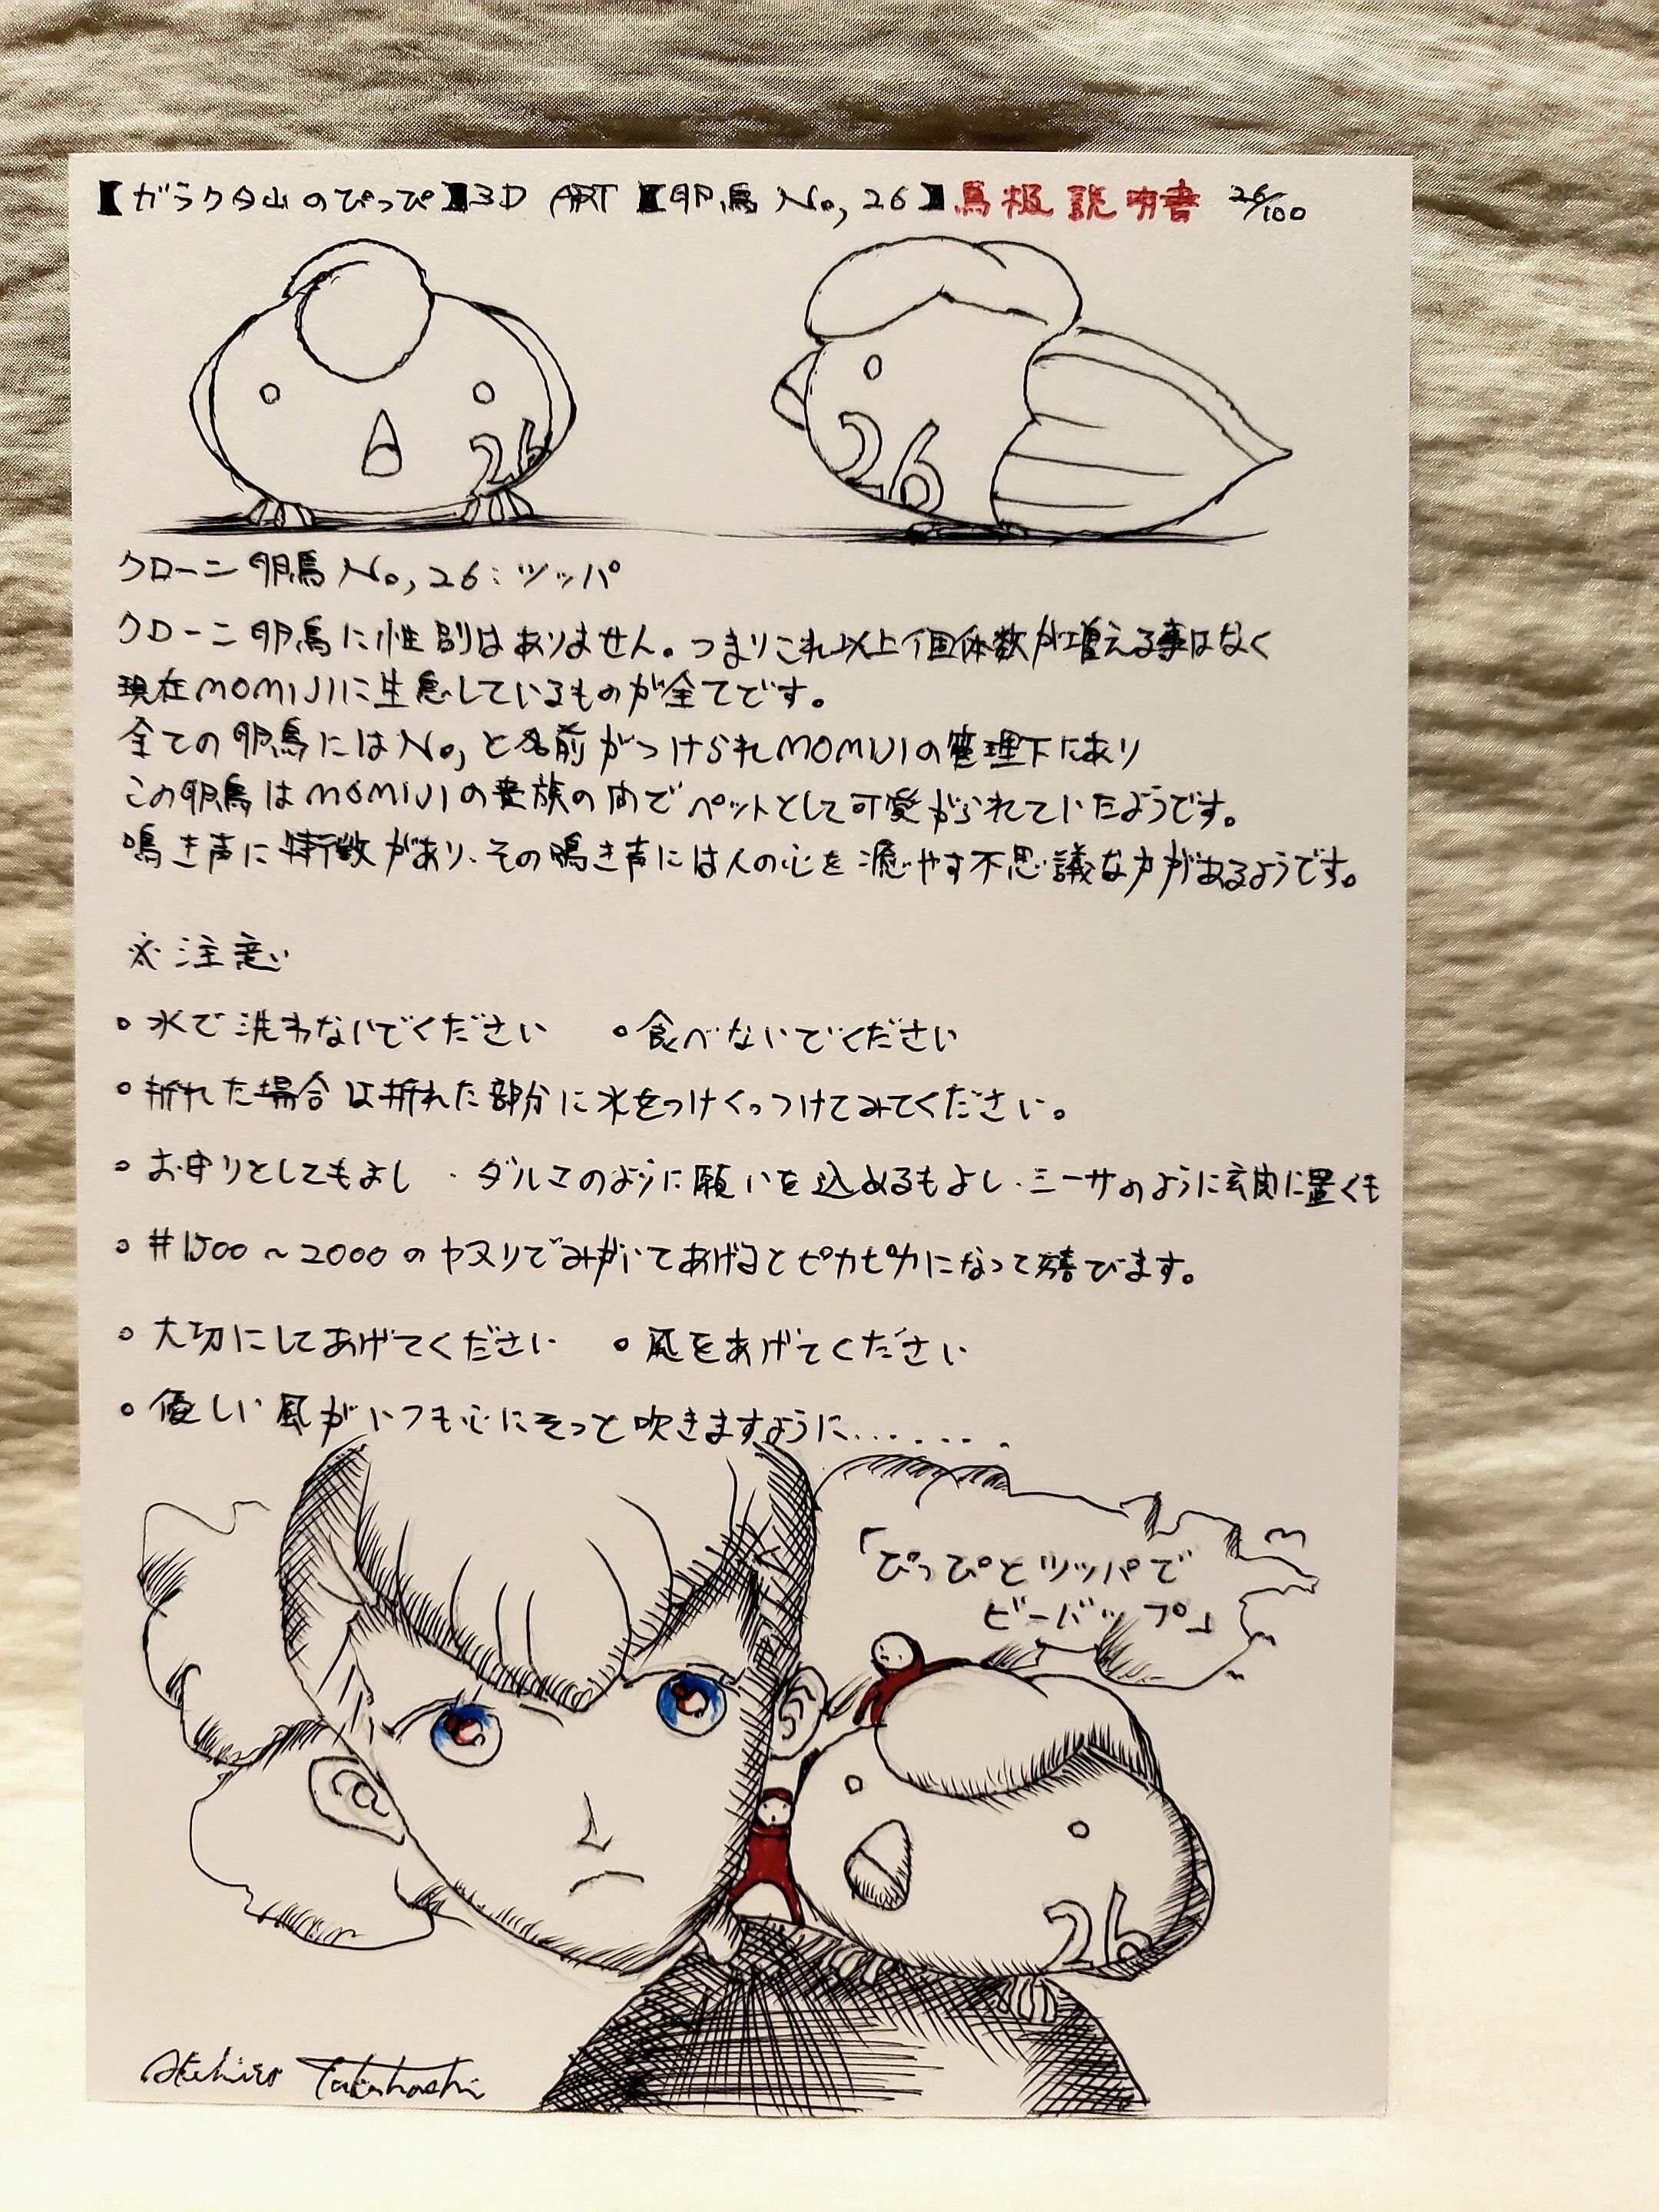 【ガラクタ山のぴっぴ】3D ART【卵鳥 No,26】鳥扱説明書 26/100
26
26
クローン卵鳥No,26:ツッパ
クローン卵鳥に性別はありません。つまりこれ以上個体数が増える事はなく
現在MOMIJIに生息しているものが全てです。
全ての卵鳥にはNo,と名前がつけられMOMIJIの管理下にあり
この卵鳥はMOMIJIの貴族の間でペットとして可愛がられていたようです。
鳴き声に特徴があり、その鳴き声には人の心を癒やす不思議な力があるようです。
※注意
○水で洗わないでください ○食べないでください
○折れた場合は折れた部分に水をつけくっつけてみてください。
○お守りとしてもよし、ダルマのように願いを込めるもよし、ミーサのように玄関に置くも
○#1500~2000のヤスリでみがいてあげるとピカピカになって喜びます。
○大切にしてあげてください ○風をあげてください
○優しい風がいつも心にそっと吹きますように........
「ぴっぴとツッパで
ビーバップ」
26
Akihiro Takahashi